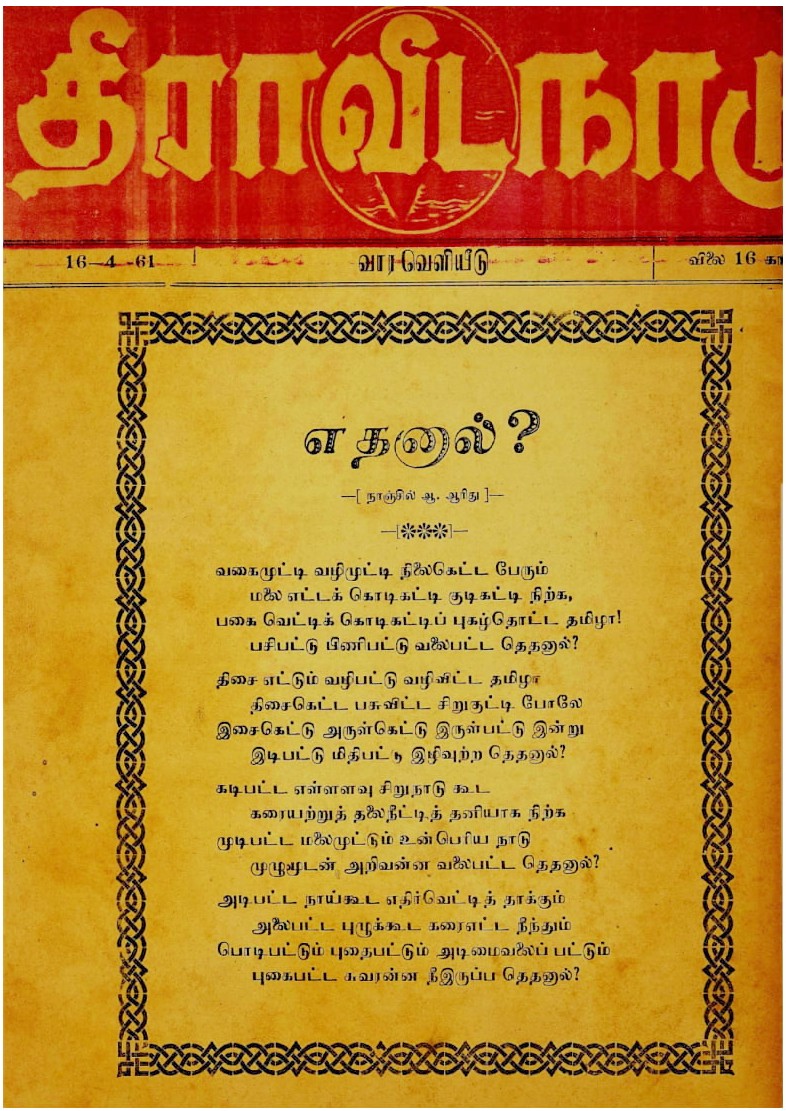 திராவிடநாடு
16-4-61
வாரவெளியீடு
விலை 16 கா
எதனால்?
—[ நாஞ்சில் ஆ. ஆரிது ]—
வகைமுட்டி வழிமுட்டி நிலைகெட்ட பேரும்
மலை எட்டக் கொடிகட்டி குடிகட்டி நிற்க,
பகை வெட்டிக் கொடிகட்டிப் புகழ்தொட்ட தமிழா!
பசிபட்டு பிணிபட்டு வலைபட்ட தெதனால்?
திசை எட்டும் வழிபட்டு வழிவிட்ட தமிழா
திசைகெட்ட பசுவிட்ட சிறுகுட்டி போலே
இசைகெட்டு அருள்கெட்டு இருள்பட்டு இன்று
இடிபட்டு மிதிபட்டு இழிவுற்ற தெதனால்?
கடிபட்ட எள்ளளவு சிறுநாடு கூட
கரையற்றுத் தலைநீட்டித் தனியாக நிற்க
முடிபட்ட மலைமுட்டும் உன்பெரிய நாடு
முழுமூடன் அறிவன்ன வலைபட்ட தெதனால்?
அடிபட்ட நாய்கூட எதிர்வெட்டித் தாக்கும்
அலைபட்ட புழுக்கூட கரைஎட்ட நீந்தும்
பொடிபட்டும் புதைபட்டும் அடிமைவலைப் பட்டும்
புகைபட்ட சுவரன்ன நீஇருப்ப தெதனால்?